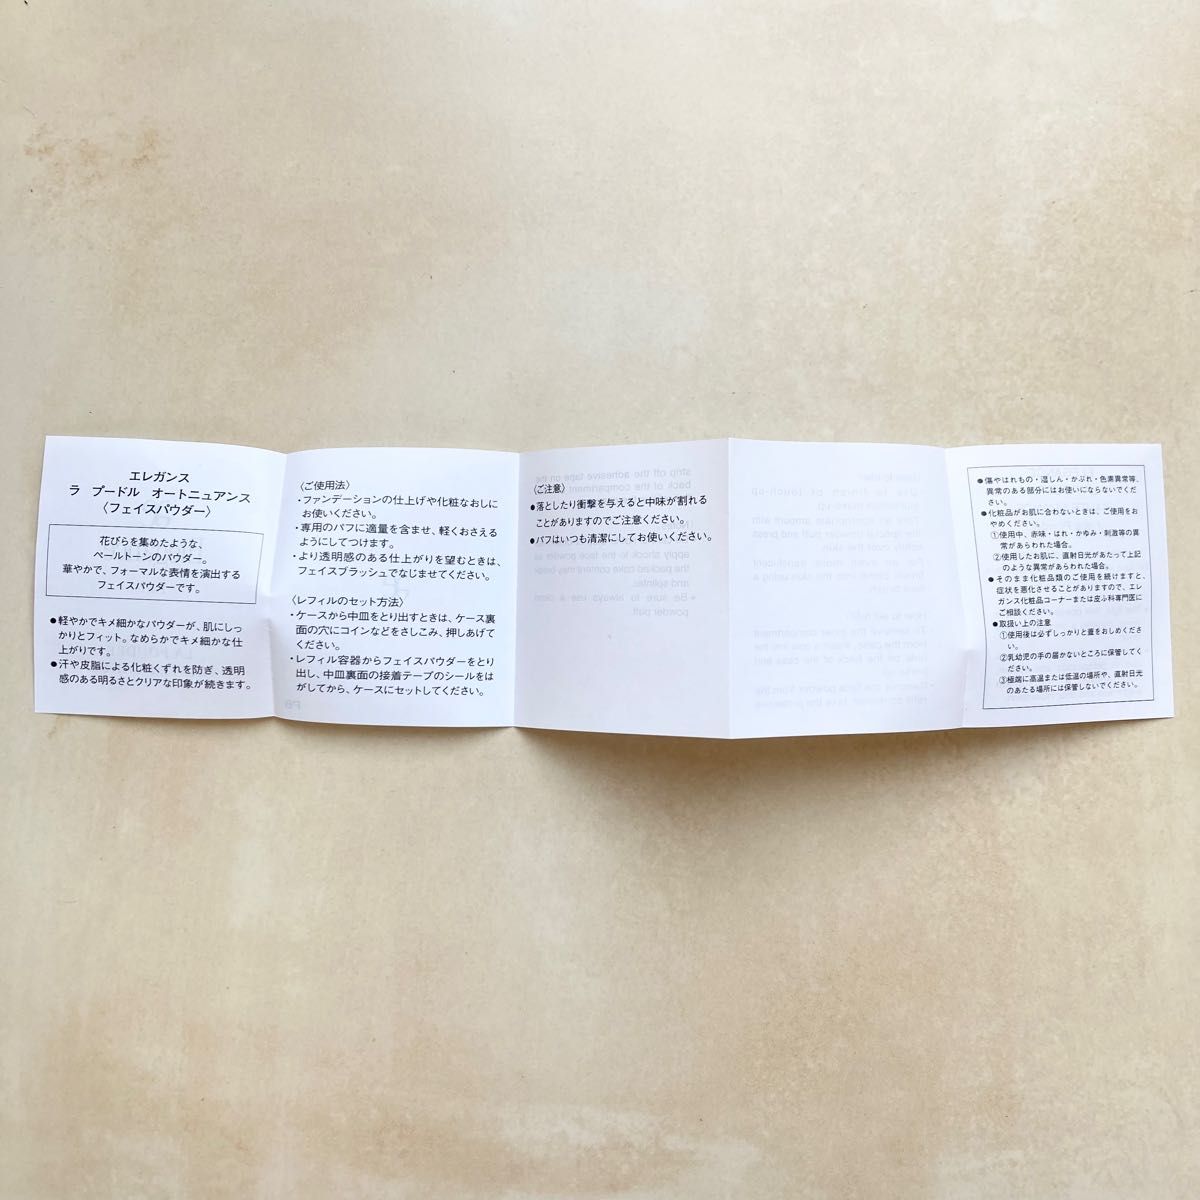 エレガンス
ラ プードル オートニュアンス
〈フェイスパウダー〉
花びらを集めたような、
ペールトーンのパウダー。
華やかで、フォーマルな表情を演出する
フェイスパウダーです。
●軽やかでキメ細かなパウダーが、肌にしっ
かりとフィット。なめらかでキメ細かな仕
上がりです。
●汗や皮脂による化粧くずれを防ぎ、透明
感のある明るさとクリアな印象が続きます。
〈ご使用法〉
・ファンデーションの仕上げや化粧なおしに
お使いください。
・専用のパフに適量を含ませ、軽くおさえる
ようにしてつけます。
・より透明感のある仕上がりを望むときは、
フェイスブラッシュでなじませてください。
〈レフィルのセット方法〉
・ケースから中皿をとり出すときは、ケース裏
面の穴にコインなどをさしこみ、押しあげて
ください。
・レフィル容器からフェイスパウダーをとり
出し、中皿裏面の接着テープのシールをは
がしてから、ケースにセットしてください。
〈ご注意〉
●落としたり衝撃を与えると中味が割れる
ことがありますのでご注意ください。
●パフはいつも清潔にしてお使いください。
●傷やはれもの・湿しん・かぶれ・色素異常等、
異常のある部分にはお使いにならないでくだ
さい。
●化粧品がお肌に合わないときは、ご使用をお
やめください。
①使用中、赤味・はれ・かゆみ・刺激等の異
常があらわれた場合。
②使用したお肌に、直射日光があたって上記
のような異常があらわれた場合。
●そのまま化粧品類のご使用を続けますと、
症状を悪化させることがありますので、エレ
ガンス化粧品コーナーまたは皮ふ科専門医に
ご相談ください。
●取扱い上の注意
①使用後は必ずしっかりと蓋をおしめくださ
い。
②乳幼児の手の届かないところに保管してく
ださい。
③極端に高温または低温の場所や、直射日光
のあたる場所には保管しないでください。